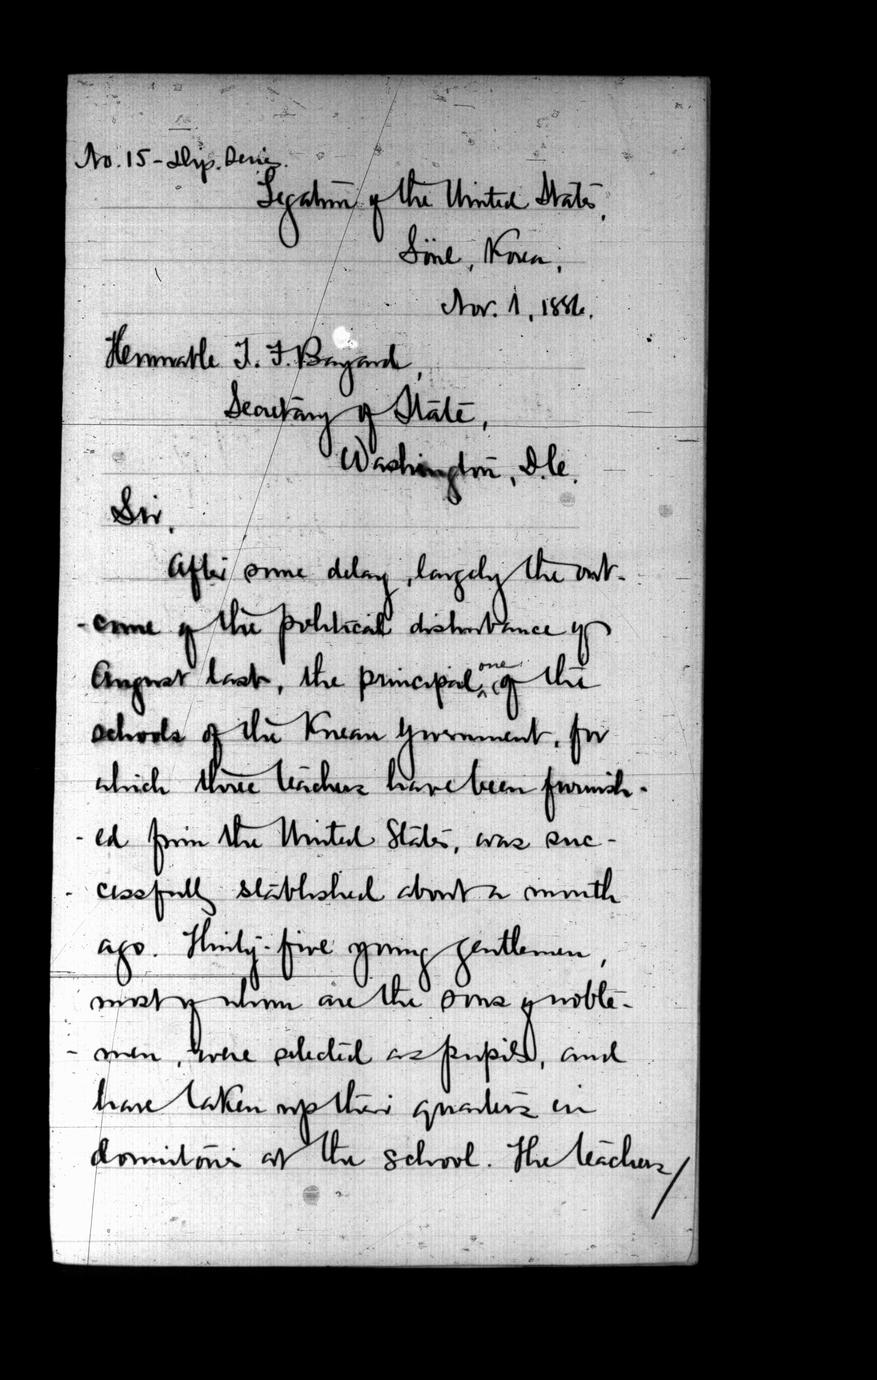 No. 15 - Dip. Series.
Legation of the United States,
Söul, Korea,
Nov. 1, 1886.
Honorable T. F. Bayard,
Secretary of State,
Washington, D.C.
Sir,
After some delay, largely the out-
-come of the political disturbance of
August last, the principal one of the
schools of the Korean Government, for
which three teachers have been furnish-
-ed from the United States, was suc-
-cessfully established about a month
ago. Thirty-five young gentlemen,
most of whom are the sons of noble-
-men, were selected as pupils, and
have taken up their quarters in
dormitories at the school. The teachers/